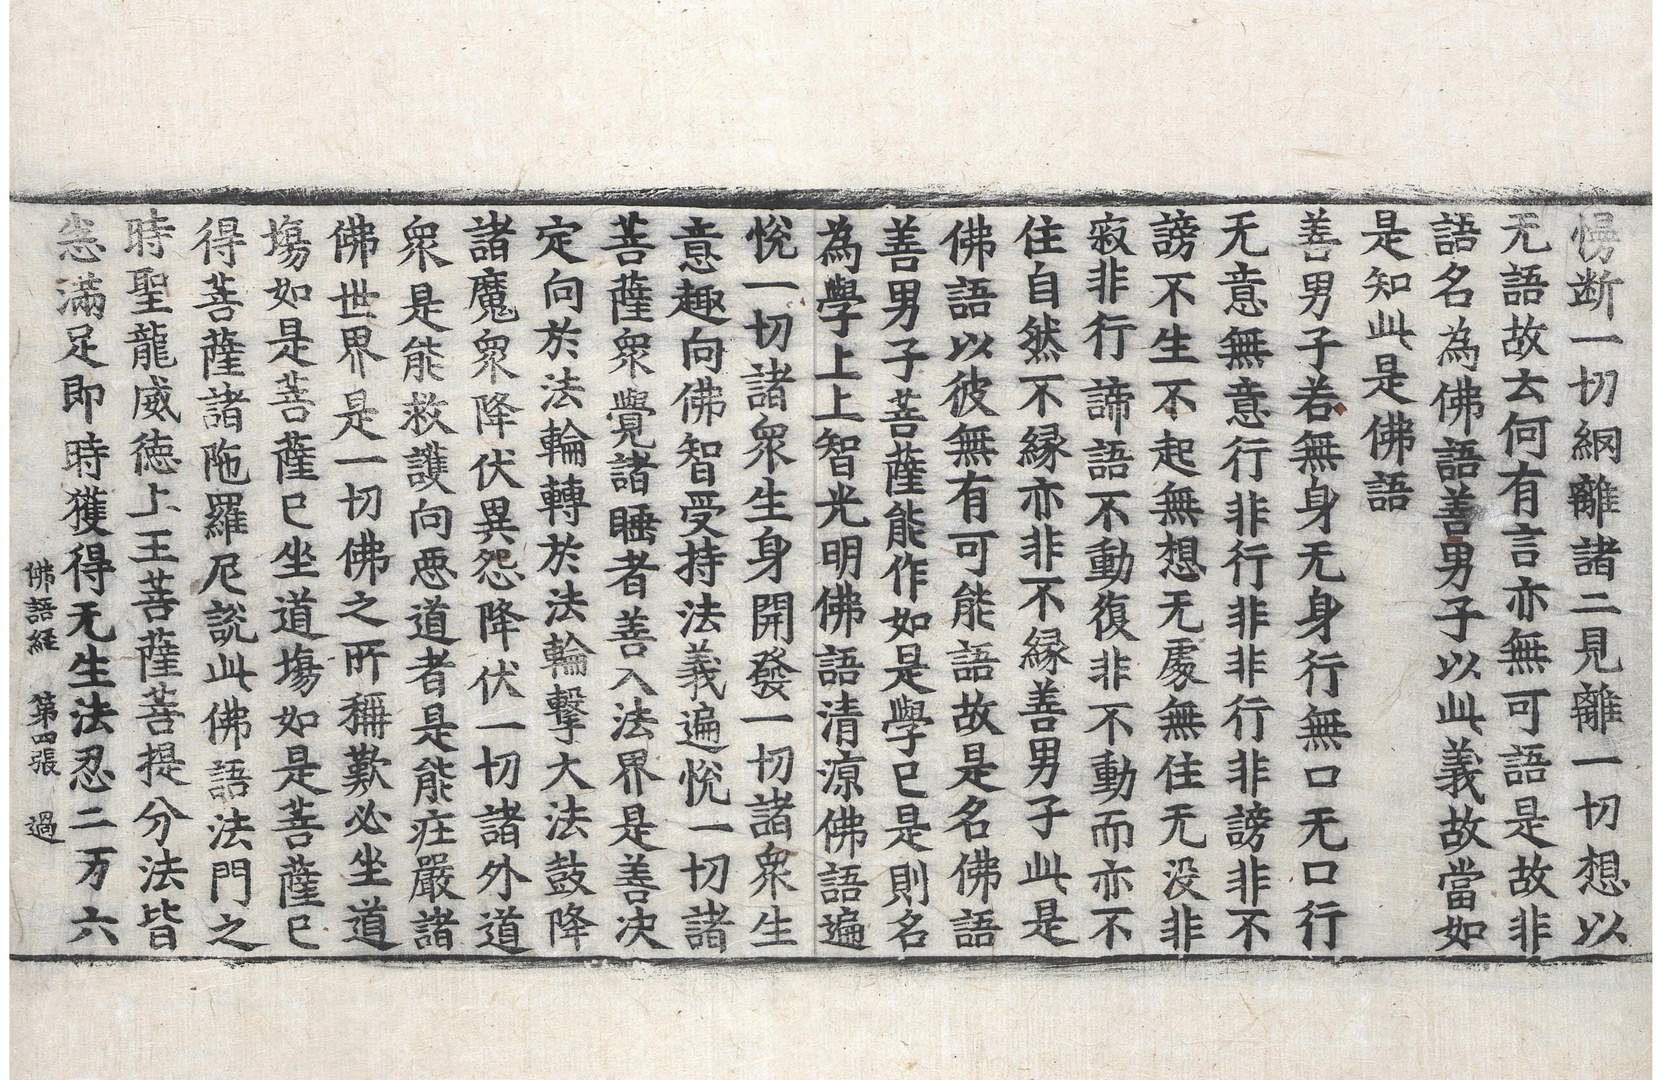 慢断一切網離諸二見離一切想以
无語故云何有言亦無可語是故非
語名為佛語善男子以此義故當如
是知此是佛語
善男子若無身无身行無口无口行
无意無意行非行非非行非謗非不
謗不生不起無想无處無住无没非
寂非行諦語不動復非不動而亦不
住自然不緣亦非不緣善男子此是
佛語以彼無有可能語故是名佛語
善男子菩薩能作如是學已是則名
為學上上智光明佛語清涼佛語遍
悅一切諸衆生身開發一切諸衆生
意趣向佛智受持法義遍悅一切諸
菩薩衆覺諸睡者善入法界是善决
定向於法輪轉於法輪擊大法鼓降
諸魔衆降伏異怨降伏一切諸外道
衆是能救護向惡道者是能庄嚴諸
佛世界是一切佛之所稱歎必坐道
場如是菩薩已坐道場如是菩薩已
得菩薩諸陁羅尼説此佛語法門之
時聖龍威德上王菩薩菩提分法皆
悉滿足即時獲得无生法忍二万六
佛語經 第四張 過